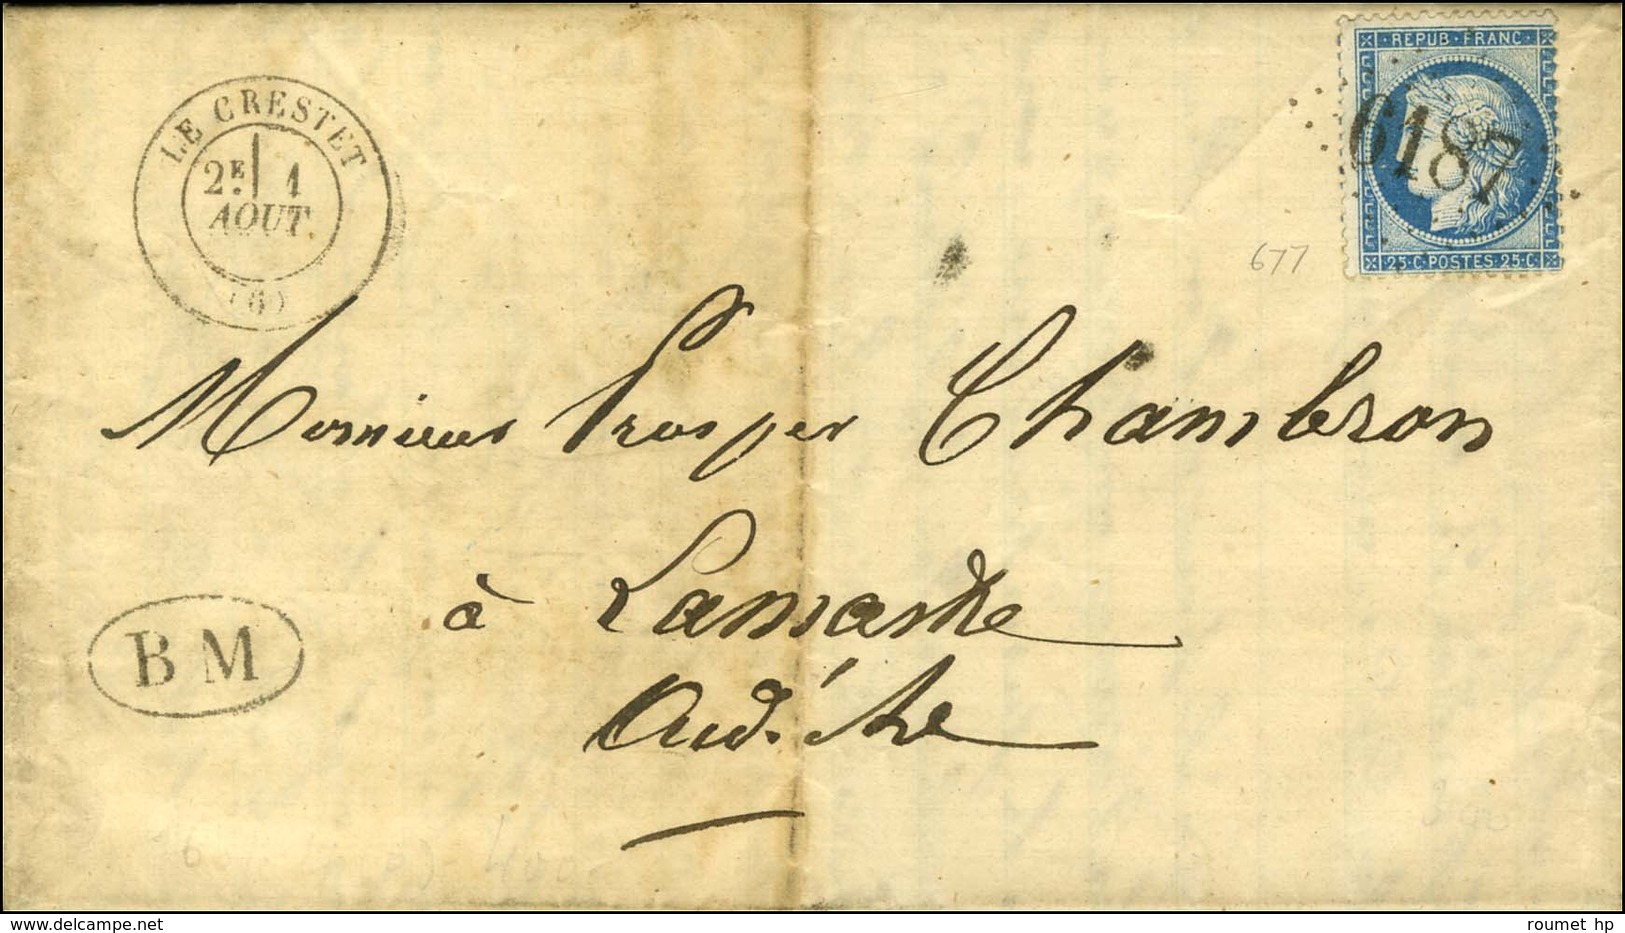 LE CRESTET
2E 1
AOUT.
(6)
REPUB·FRANC·
6187
25·C·POSTES·25·C
677
Monsieur Prosper Chambron
à Lamastre
Ardèche
B M
400
www.delcampe.net
roumet hp